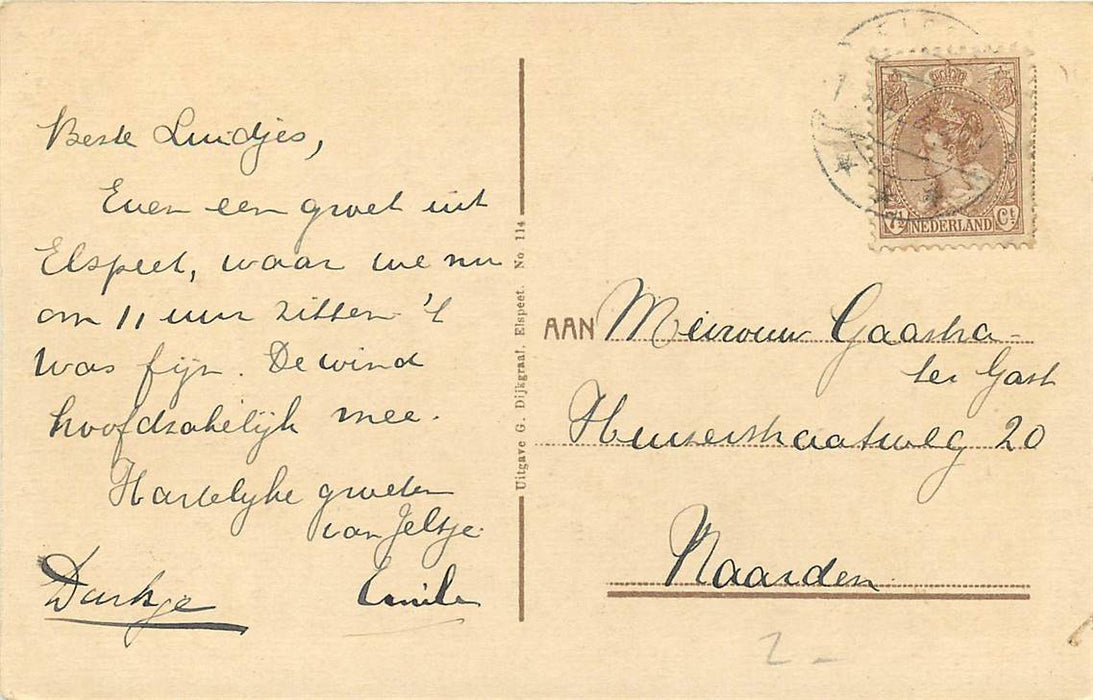 Beste Luidjes,
Even een groet uit
Elspeet, waar we nu
om 11 uur zitten 't
Was fijn. De wind
hoofdzakelijk mee.
Hartelijke groeten
van Jeltje.
Emile
Uitgave G. Dijkgraaf, Elspeet. No 114
7½ NEDERLAND Ct.
AAN Mevrouw Gaastra-
ter Gast
Huizerstraatweg 20
Naarden
2 –